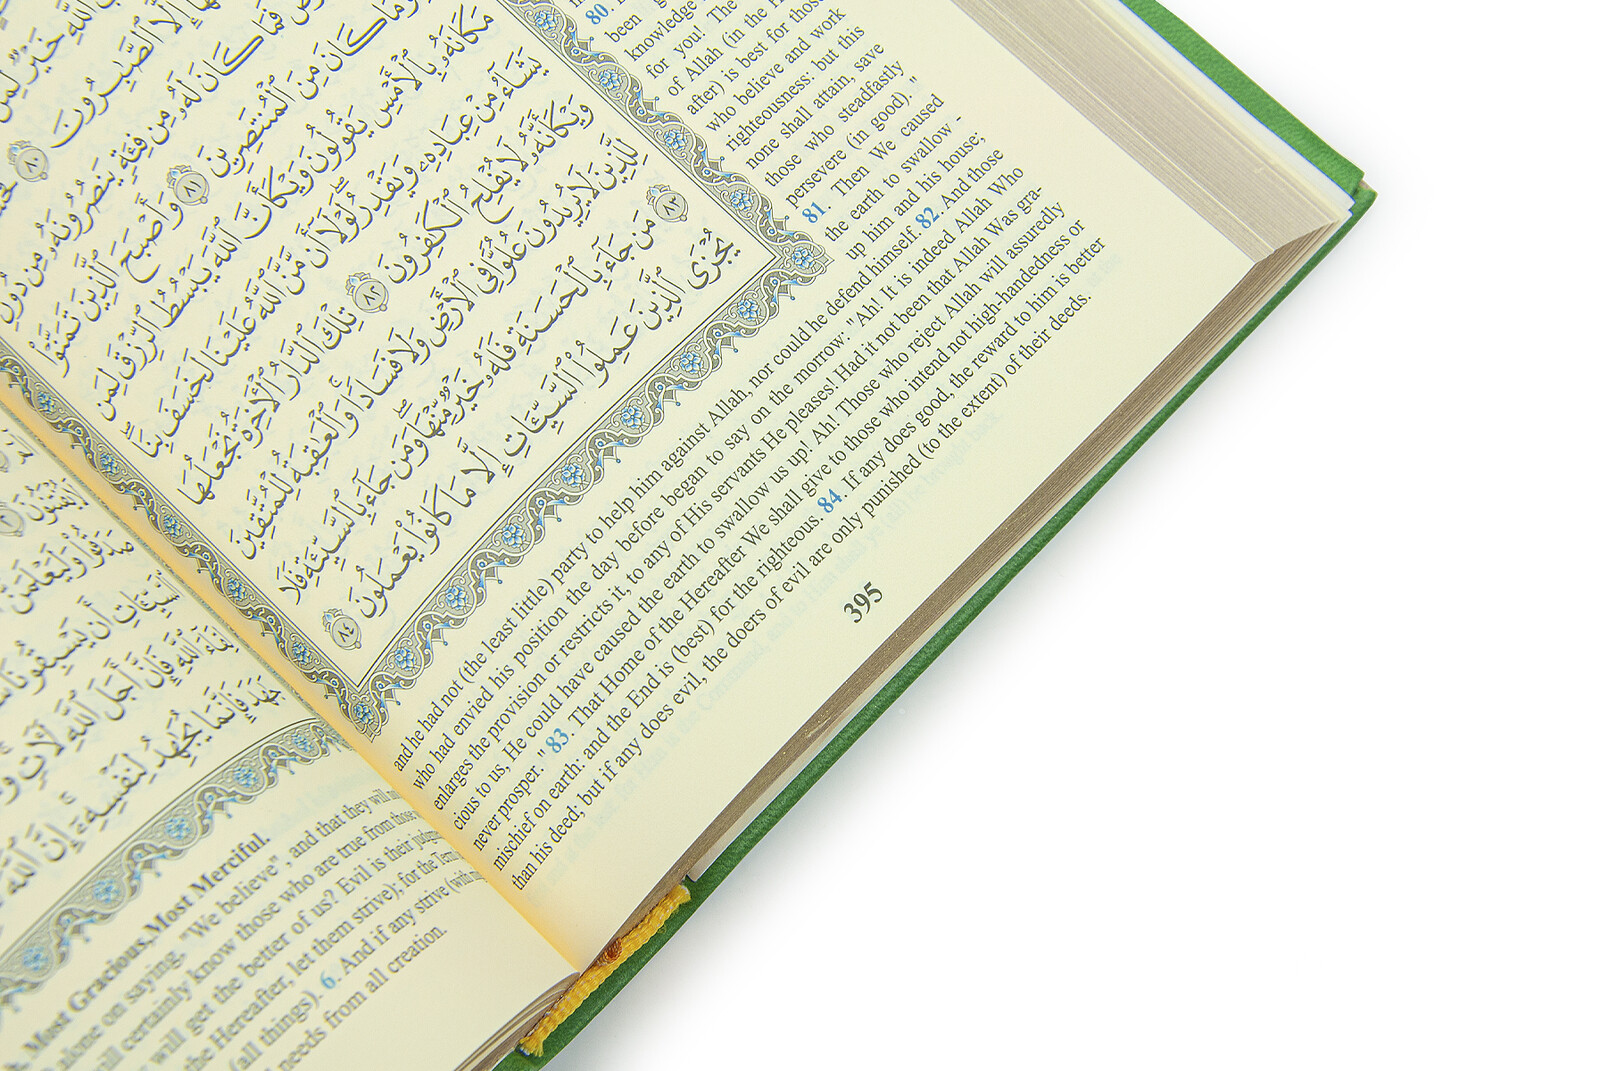 80.
been
knowledge
for you! The
of Allah (in the
after) is best for those
who believe and work
righteousness: but this
none shall attain, save
those who steadfastly
persevere (in good)."
81. Then We caused
the earth to swallow -
up him and his house;
and he had not (the least little) party to help him against Allah, nor could he defend himself. 82. And those
who had envied his position the day before began to say on the morrow: "Ah! It is indeed Allah Who
enlarges the provision or restricts it, to any of His servants He pleases! Had it not been that Allah Was gra-
cious to us, He could have caused the earth to swallow us up! Ah! Those who reject Allah will assuredly
never prosper." 83. That Home of the Hereafter We shall give to those who intend not high-handedness or
mischief on earth: and the End is (best) for the righteous. 84. If any does good, the reward to him is better
than his deed; but if any does evil, the doers of evil are only punished (to the extent) of their deeds.
395
إِلَّا ٱلصَّٰبِرُونَ ٨٠
فَمَا كَانَ لَهُۥ مِن فِئَةٍ يَنصُرُونَهُۥ مِن دُونِ
وَمَا كَانَ مِنَ ٱلْمُنتَصِرِينَ ٨١ وَأَصْبَحَ ٱلَّذِينَ تَمَنَّوْا۟
مَكَانَهُۥ بِٱلْأَمْسِ يَقُولُونَ وَيْكَأَنَّ ٱللَّهَ يَبْسُطُ ٱلرِّزْقَ لِمَن
يَشَآءُ مِنْ عِبَادِهِۦ وَيَقْدِرُ لَوْلَآ أَن مَّنَّ ٱللَّهُ عَلَيْنَا لَخَسَفَ بِنَا
وَيْكَأَنَّهُۥ لَا يُفْلِحُ ٱلْكَٰفِرُونَ ٨٢ تِلْكَ ٱلدَّارُ ٱلْأَخِرَةُ نَجْعَلُهَا
لِلَّذِينَ لَا يُرِيدُونَ عُلُوًّا فِى ٱلْأَرْضِ وَلَا فَسَادًا وَٱلْعَٰقِبَةُ لِلْمُتَّقِينَ
٨٣ مَن جَآءَ بِٱلْحَسَنَةِ فَلَهُۥ خَيْرٌ مِّنْهَا وَمَن جَآءَ بِٱلسَّيِّئَةِ فَلَا
يُجْزَى ٱلَّذِينَ عَمِلُوا۟ ٱلسَّيِّـَٔاتِ إِلَّا مَا كَانُوا۟ يَعْمَلُونَ ٨٤
أَن يَسْبِقُونَا
فَإِنَّ أَجَلَ ٱللَّهِ لَأٓتٍ
فَإِنَّمَا يُجَٰهِدُ لِنَفْسِهِۦٓ إِنَّ ٱللَّهَ
Most Gracious, Most Merciful.
alone on saying, "We believe", and that they will
will certainly know those who are true from those
will get the better of us? Evil is their
the Hereafter, let them strive); for the Term
(all things). 6. And if any strive (with
needs from all creation.